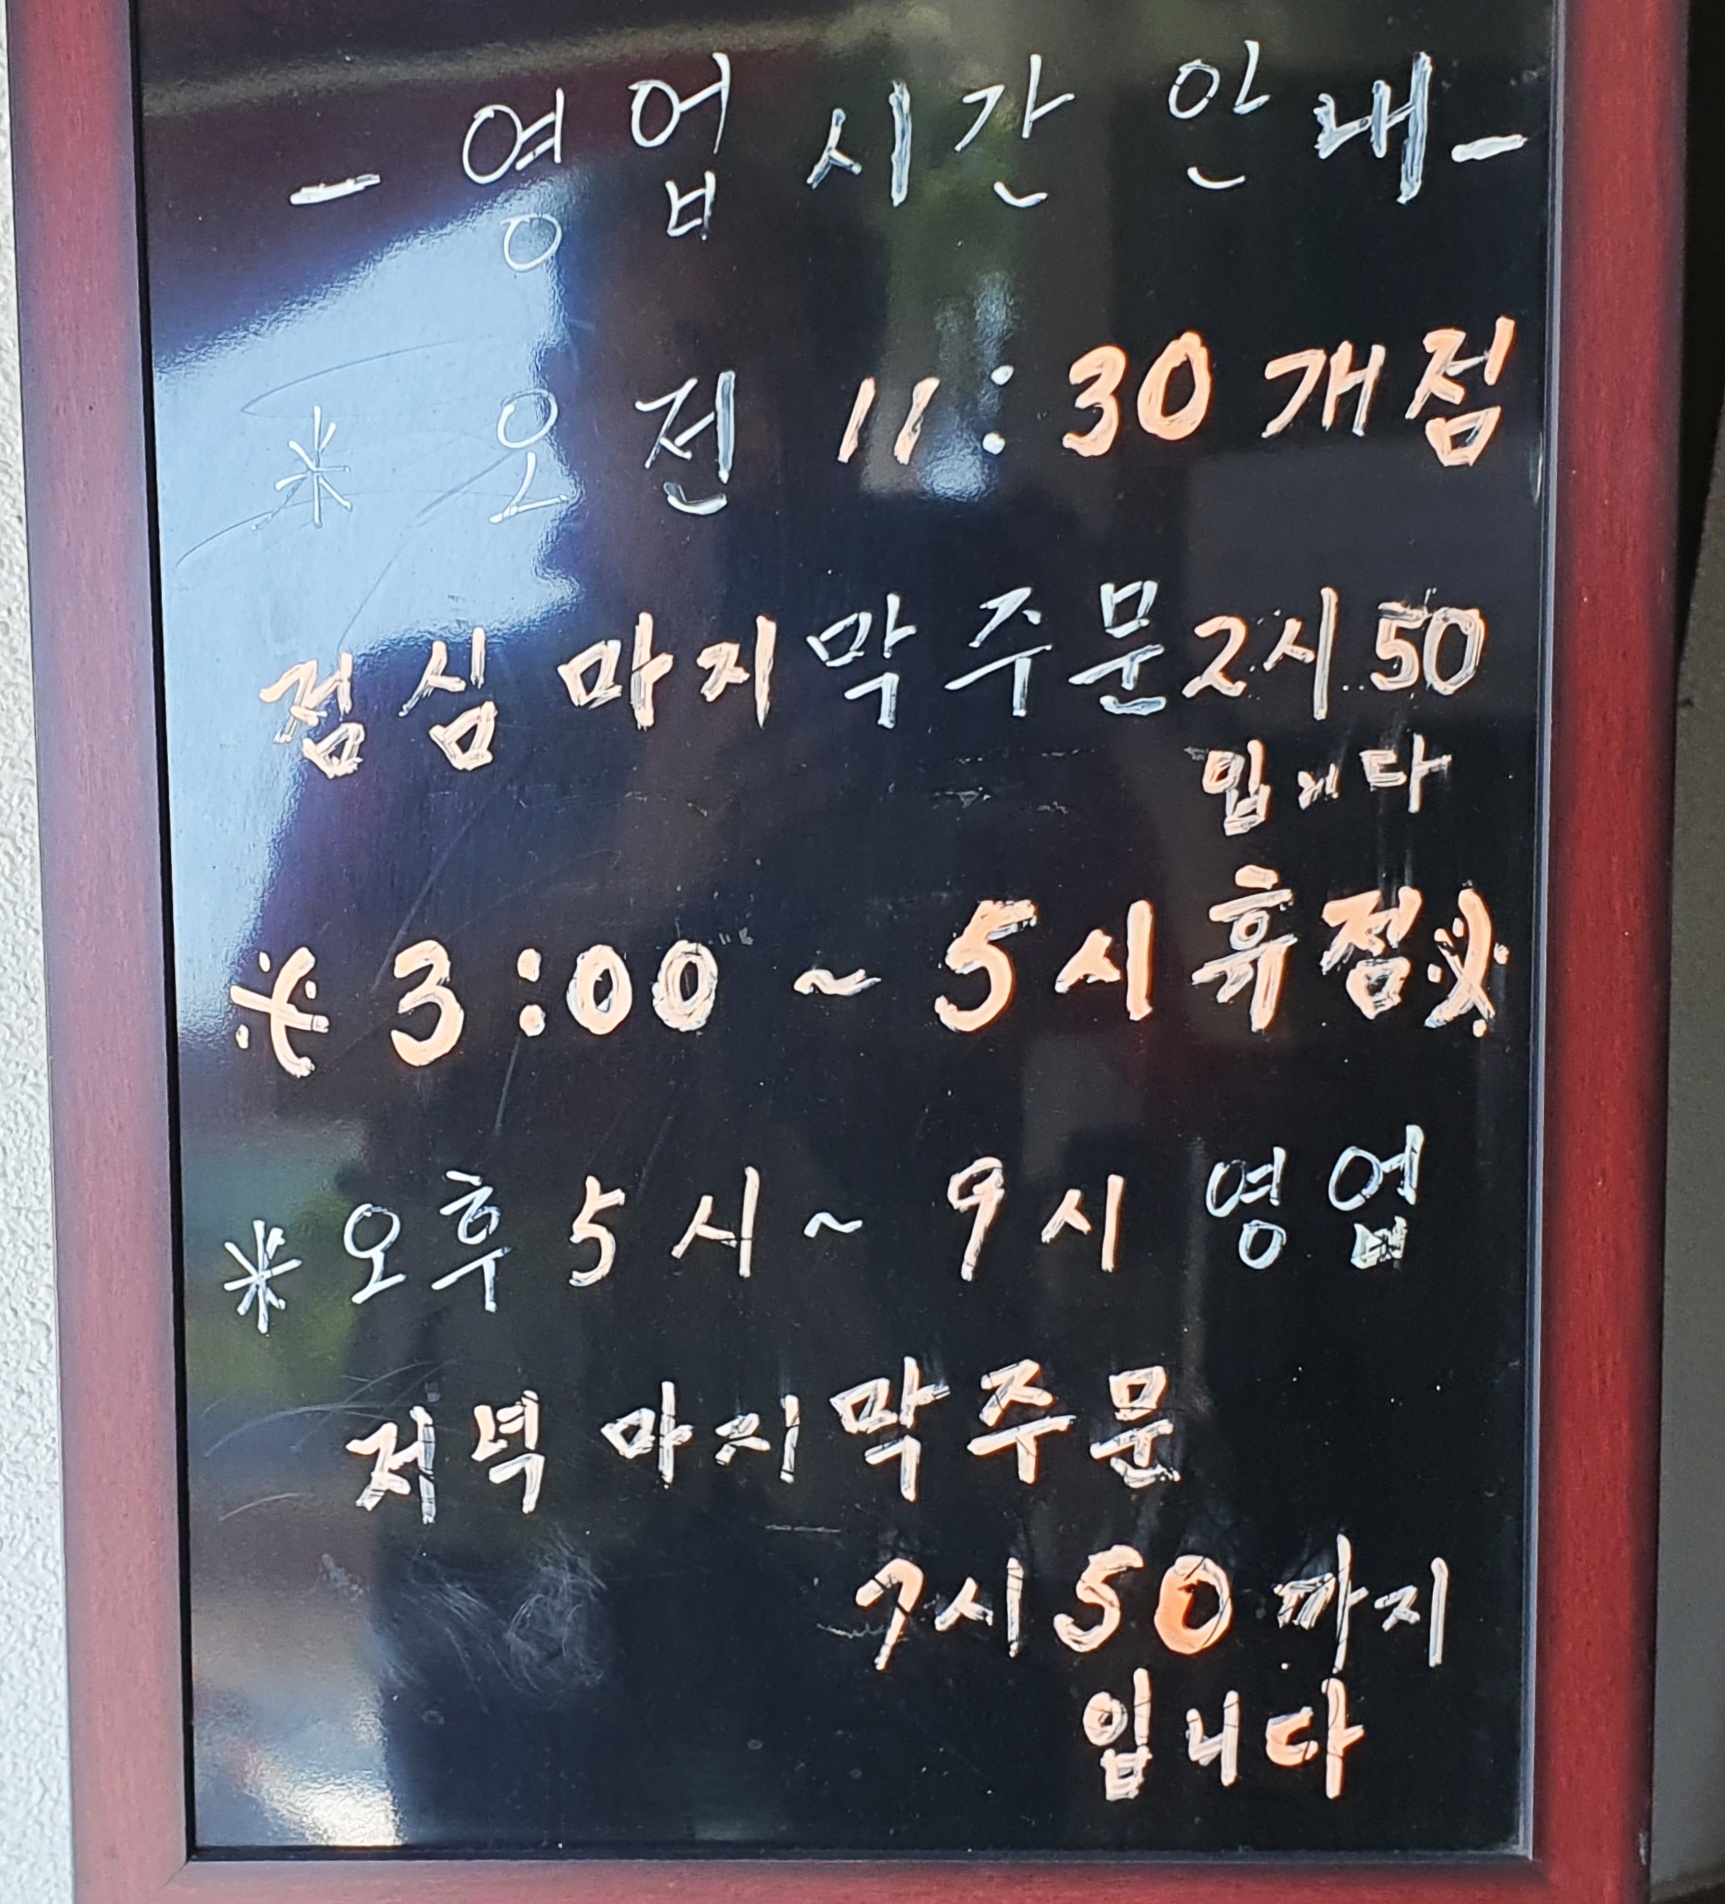 - 영업시간 안내 -
* 오전 11:30 개점
점심 마지막 주문 2시 50
입니다
※ 3:00 ~ 5시 휴점 ※
* 오후 5시 ~ 9시 영업
저녁 마지막 주문
7시 50 까지
입니다